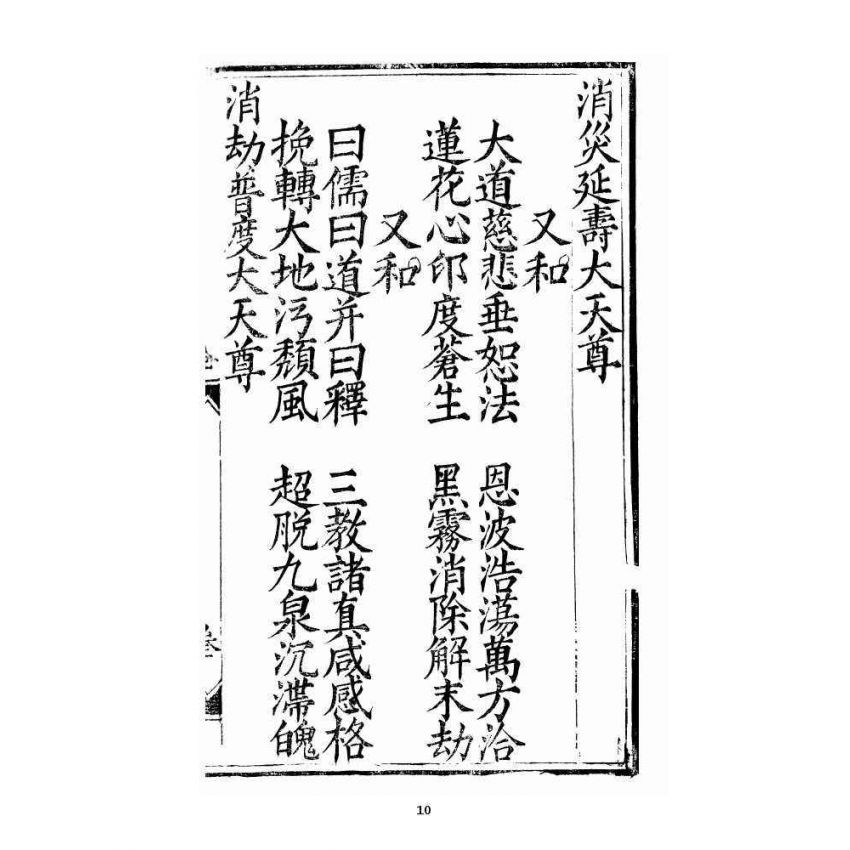 消災延壽大天尊
又和
大道慈悲垂恕法　恩波浩蕩萬方洽
蓮花心印度蒼生　黑霧消除解末劫
又和
曰儒曰道并曰釋　三教諸真咸感格
挽轉大地污頹風　超脱九泉沉滯魄
消劫普度大天尊
10